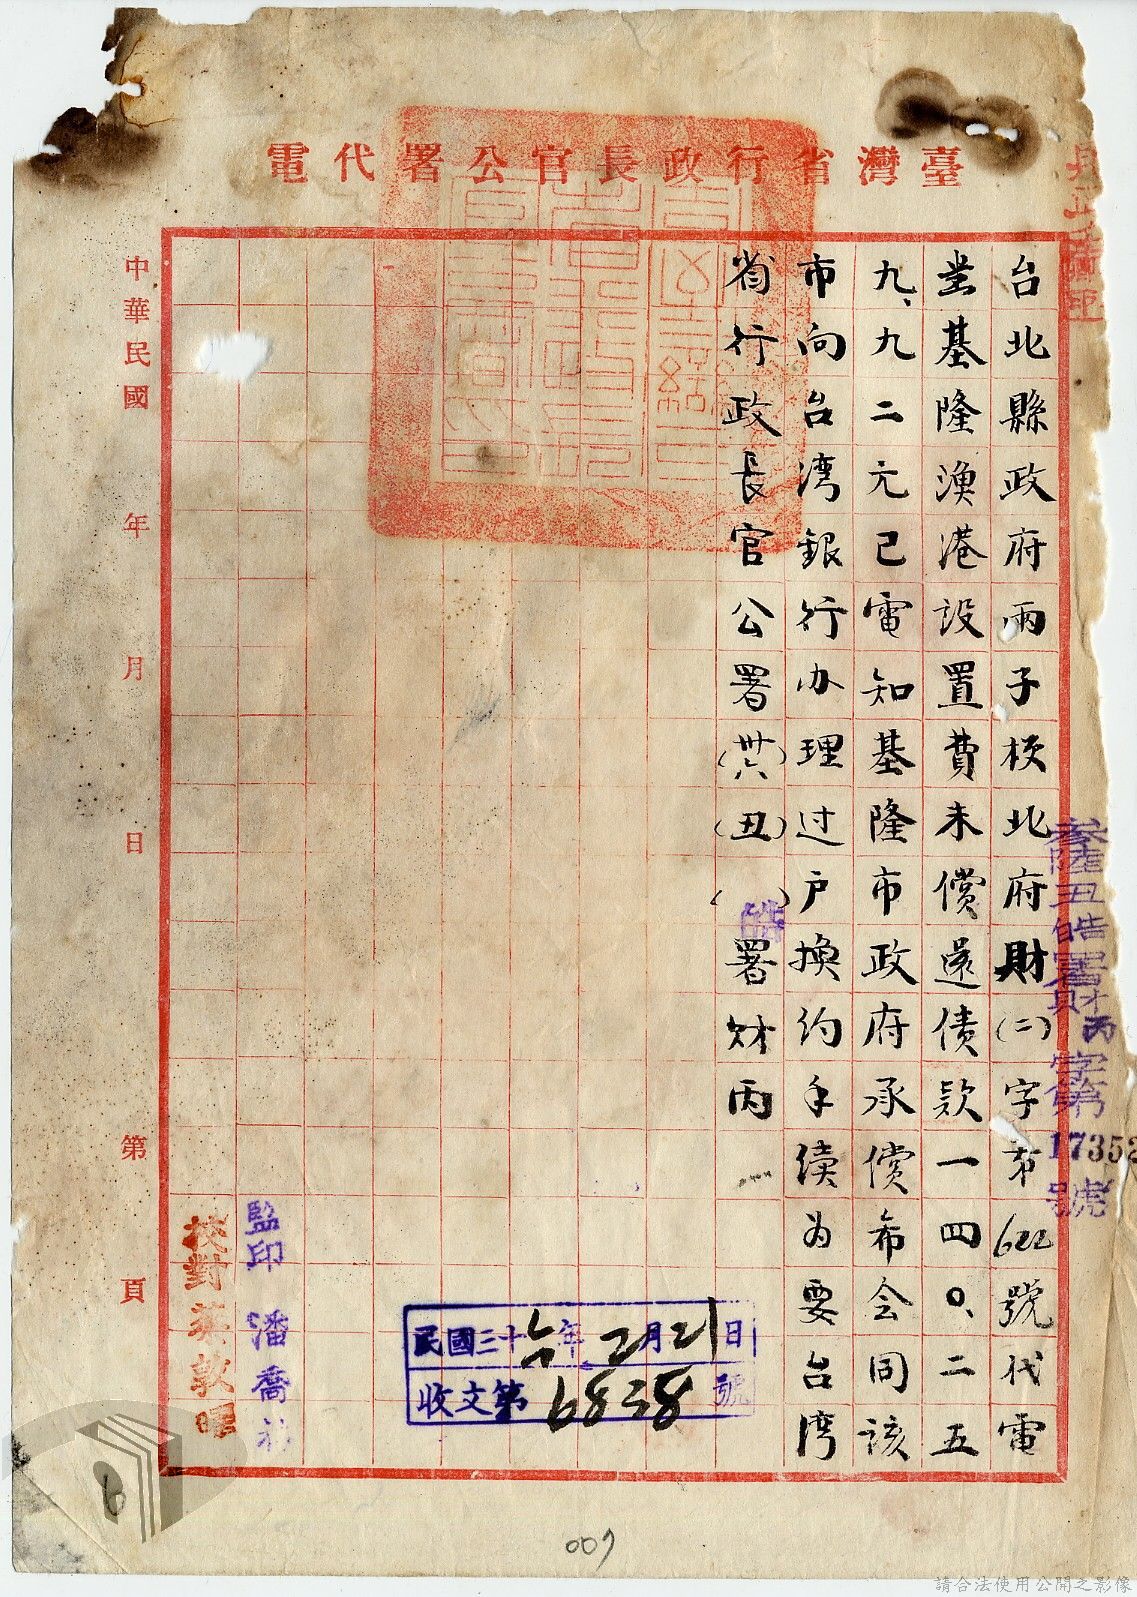 臺灣省行政長官公署代電
台北縣政府丙子梗北府財(二)字第622號代電
基隆漁港設置費未償還債款一四〇、二五
九、九二元已電知基隆市政府承償希会同該
市向台湾銀行办理过户換約手續为要台湾
省行政長官公署(卅六)(丑)(皓)署财丙
參陸丑皓署財丙字第17352號
民國三十六年2月21日
收文第6838號
監印 潘喬
校對 敦
中華民國 年 月 日 第 頁
6
007
請合法使用公開之影像